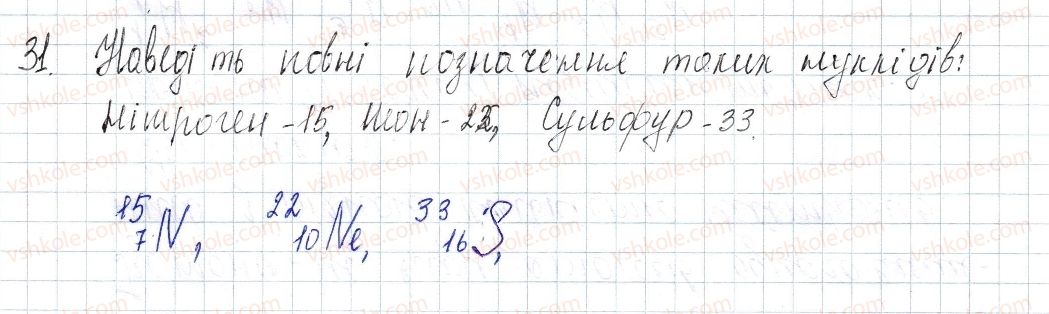 31. Наведіть повні позначення таких нуклідів:
Нітроген-15, Неон-22, Сульфур-33.
¹⁵₇N, ²²₁₀Ne, ³³₁₆S,